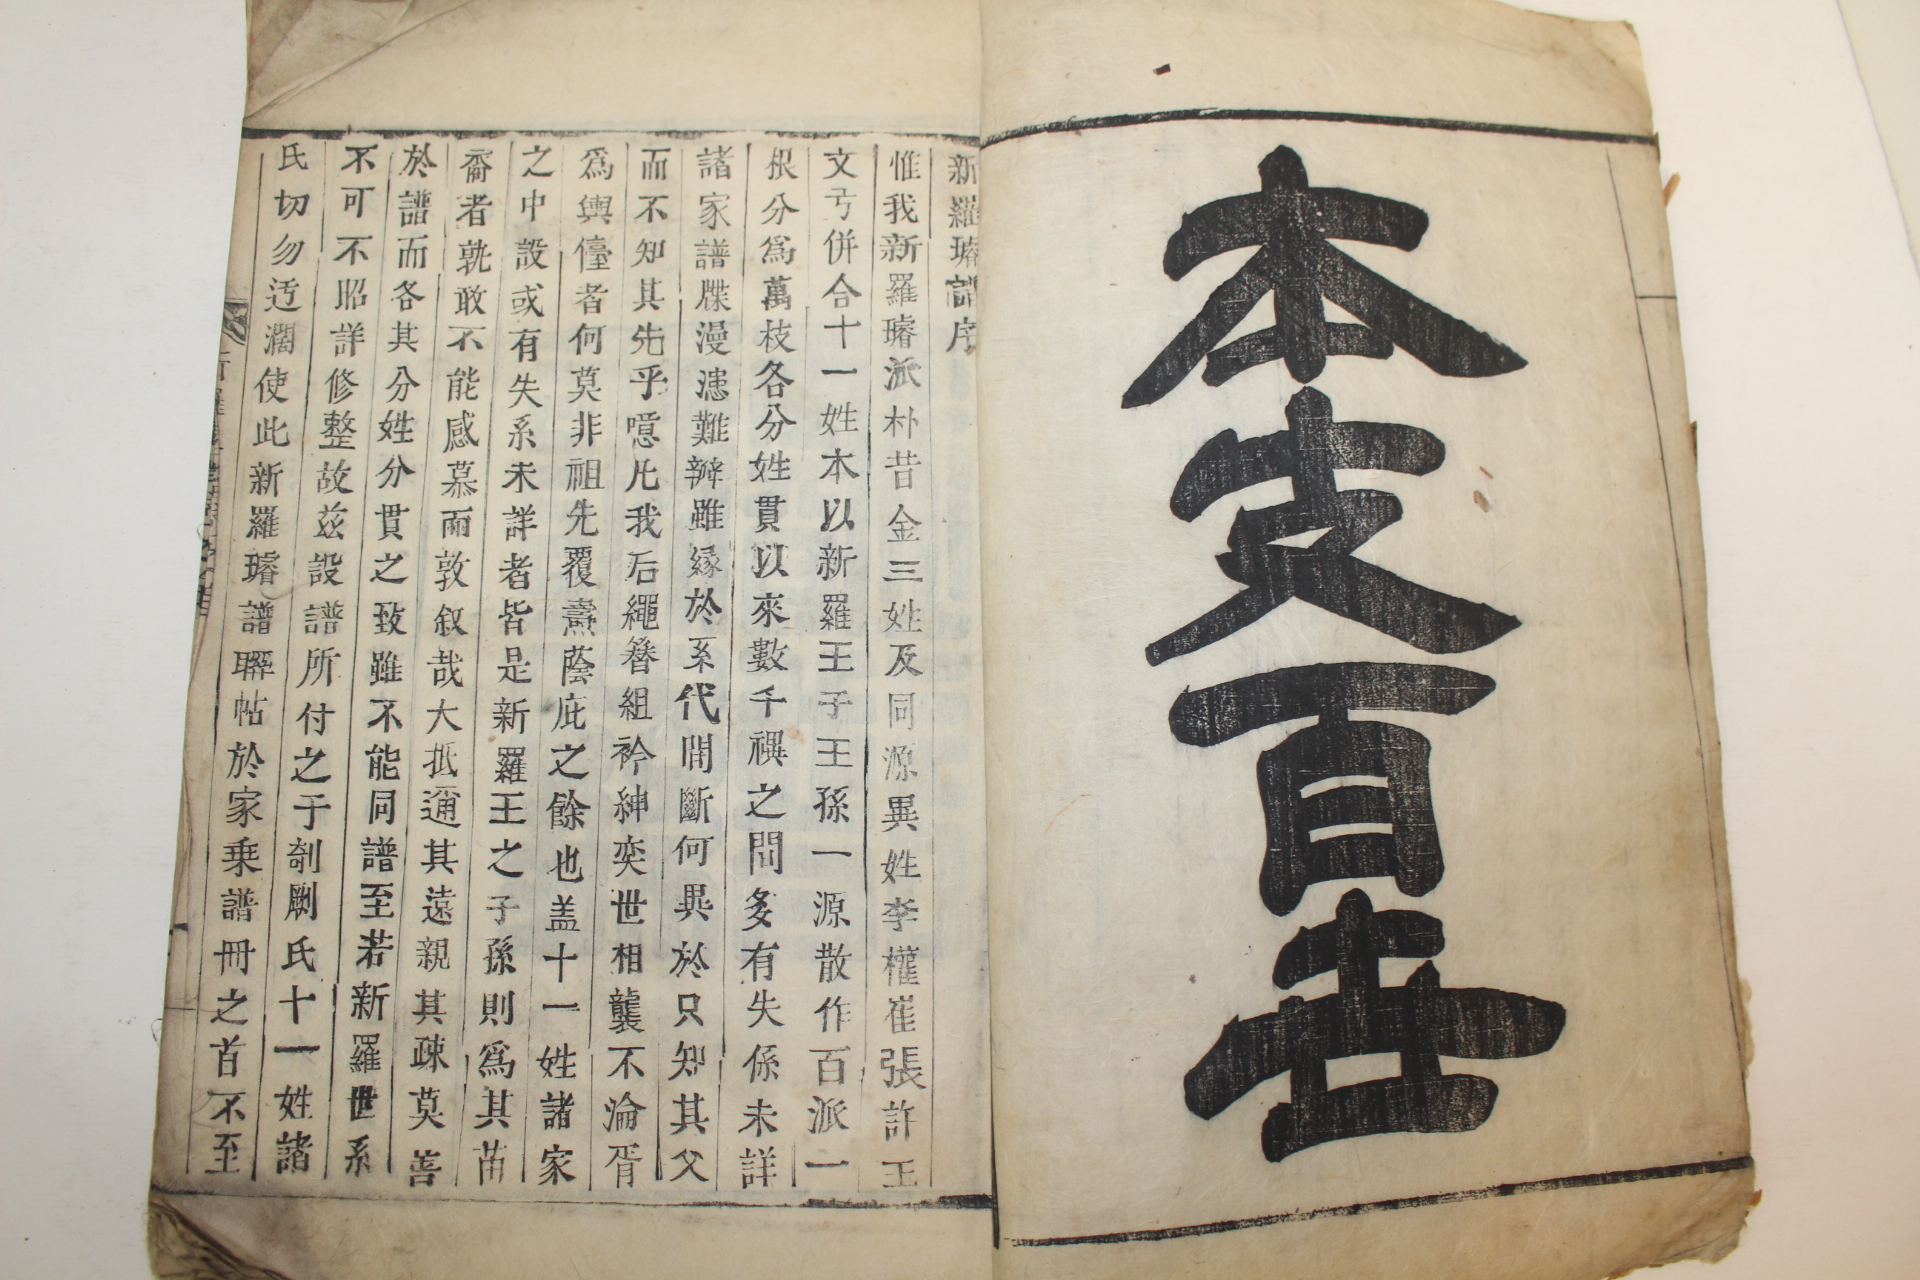 本支百世
新羅璿譜序
惟我新羅璿派朴昔金三姓及同源異姓李權崔張許王
文丂併合十一姓本以新羅王子王孫一源散作百派一
根分爲萬枝各分姓貫以來數千禩之間多有失係未詳
諸家譜牒漫漶難辨雖緣於系代間斷何異於只知其父
而不知其先乎噫凡我后繩簪組衿紳奕世相襲不淪胥
爲輿儓者何莫非祖先覆燾蔭庇之餘也盖十一姓諸家
之中設或有失系未詳者皆是新羅王之子孫則爲其苗
裔者孰敢不能感慕而敦叙哉大抵邇其遠親其疎莫善
於譜而各其分姓分貫之致雖不能同譜至若新羅世系
不可不昭詳修整故茲設譜所付之于剞劂氏十一姓諸
氏切勿迃濶使此新羅璿譜聯帖於家乗譜冊之首不至